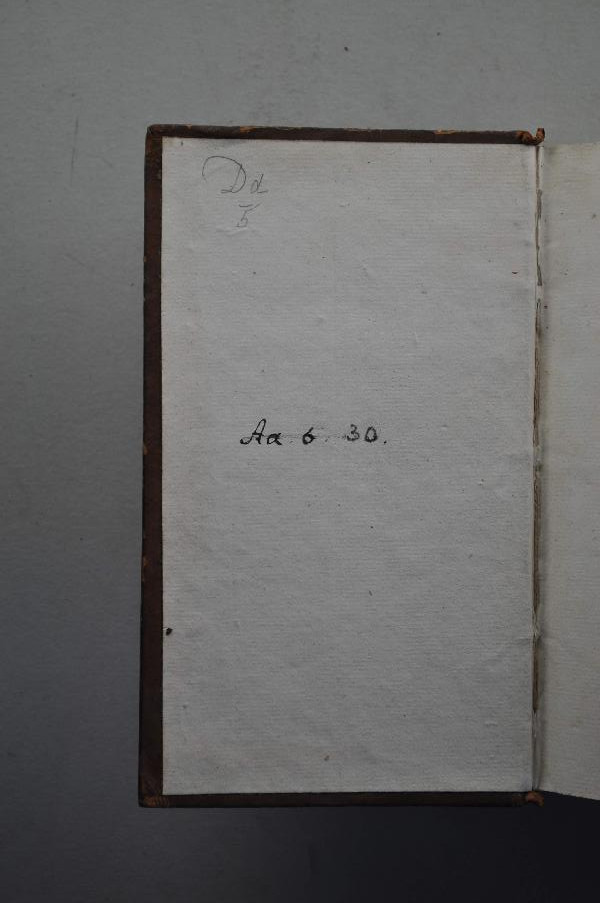 Dd
5
Aa. 6. 30.